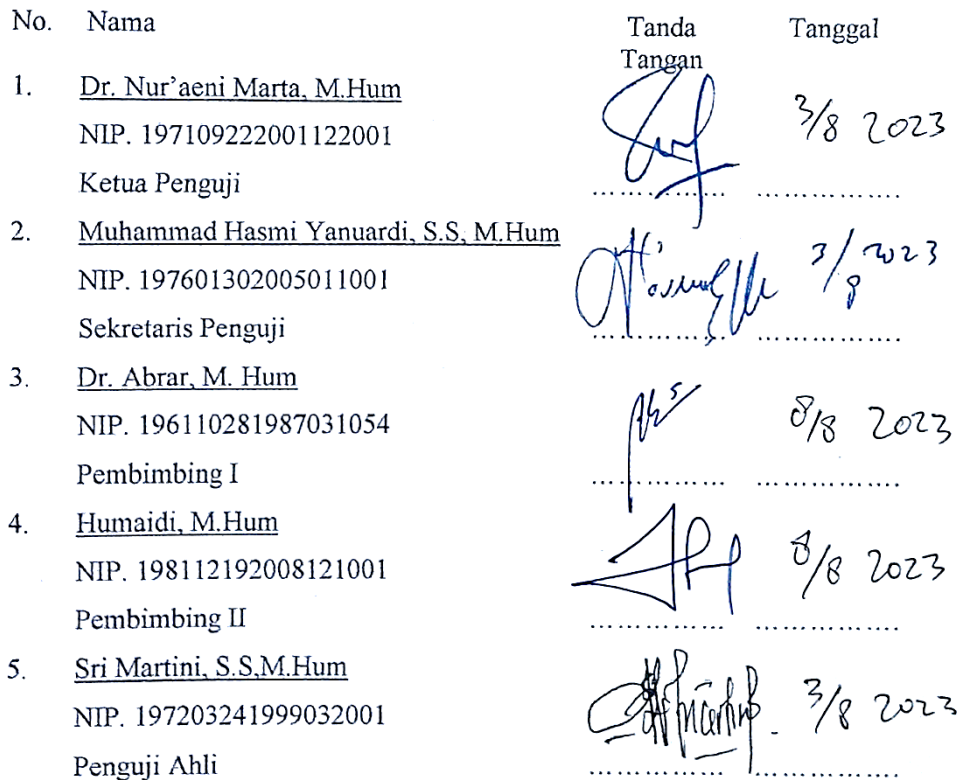 No. Nama Tanda Tangan Tanggal
1. Dr. Nur'aeni Marta, M.Hum
NIP. 197109222001122001 3/8 2023
Ketua Penguji ........................ ........................
2. Muhammad Hasmi Yanuardi, S.S, M.Hum
NIP. 197601302005011001 3/8 2023
Sekretaris Penguji ........................ ........................
3. Dr. Abrar, M. Hum
NIP. 196110281987031054 8/8 2023
Pembimbing I ........................ ........................
4. Humaidi, M.Hum
NIP. 198112192008121001 8/8 2023
Pembimbing II ........................ ........................
5. Sri Martini, S.S,M.Hum
NIP. 197203241999032001 3/8 2023
Penguji Ahli ........................ ........................